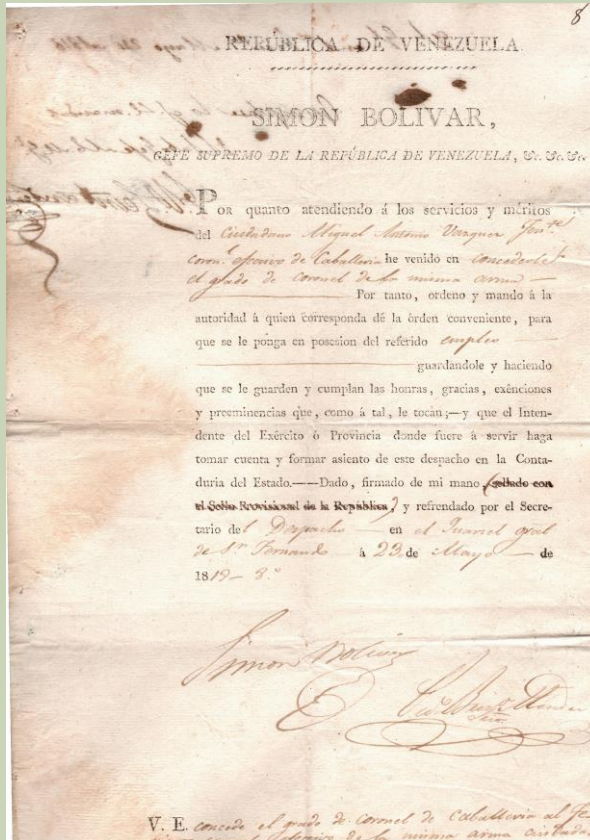 8
REPÚBLICA DE VENEZUELA
SIMON BOLIVAR,
GEFE SUPREMO DE LA REPÚBLICA DE VENEZUELA, &c. &c. &c.
POR quanto atendiendo á los servicios y méritos
del Ciudadano Miguel Antonio Vasquez Ten.te
coron. efectivo de Caballeria he venido en concederle
el grado de coronel de la misma arma
Por tanto, ordeno y mando á la
autoridad á quien corresponda dé la órden conveniente, para
que se le ponga en posesion del referido empleo
guardandole y haciendo
que se le guarden y cumplan las honras, gracias, exênciones
y preeminencias que, como á tal, le tocan;—y que el Inten-
dente del Exército ó Provincia donde fuere á servir haga
tomar cuenta y formar asiento de este despacho en la Conta-
duria del Estado.——Dado, firmado de mi mano, (sellado con
el Sello Provisional de la República,) y refrendado por el Secre-
tario del Despacho en el Quartel gral
de Sn Fernando á 23 de Mayo de
1818- 8.°
Simon Bolivar
V. E. concede el grado de coronel de Caballeria al
de la misma arma